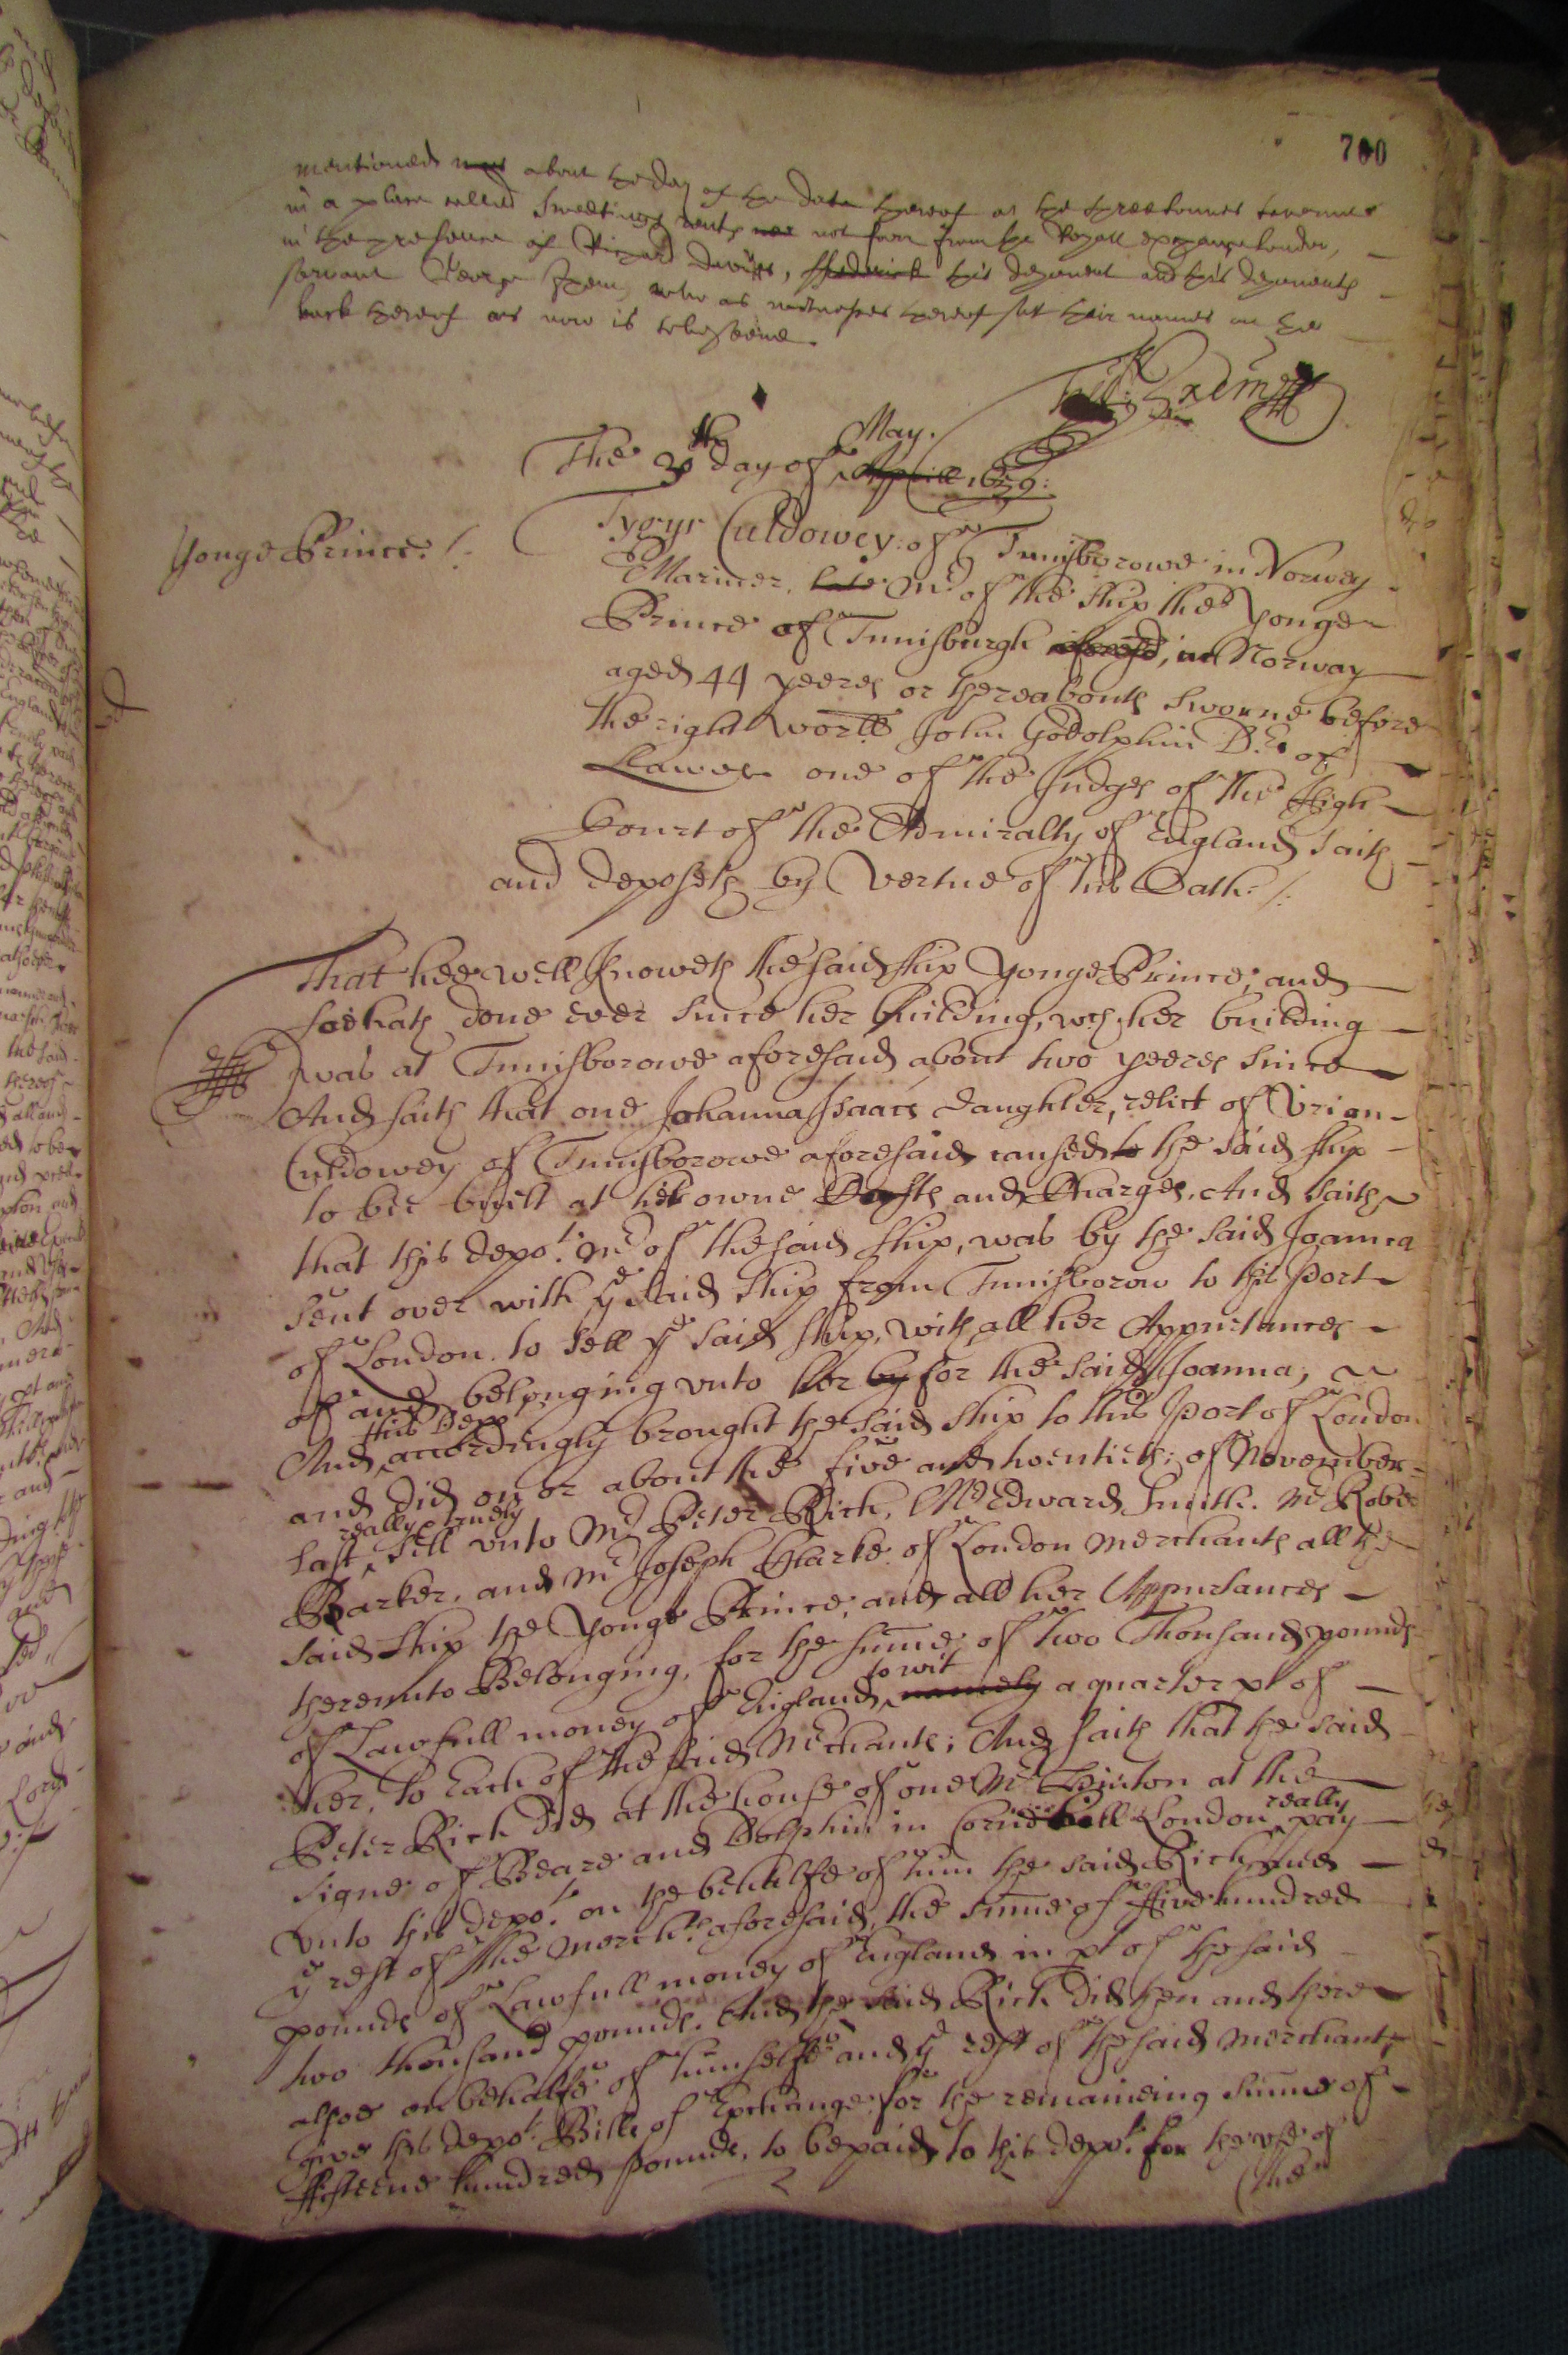 700
mentioned was about the day of the date thereof at the
in a place called Sweetings rents not farr from the Royall exchange London,
in the presence of Richard this deponent and this deponents
servant George who as witnesses thereof set their names on the
back thereof as now is to be seene.
The 30th day of May. Aprill 1659:
Yonge Prince. /.
Tygyr Culdowey: of Tunisborowe in Norwey
Mariner, late Mr of the ship the Yonge
Prince of Tunisburgh aforesd, in Norway
aged 44 yeeres or thereabouts sworne before
the right worll John Godolphin Dr. of
Lawes one of the Judges of the High
Court of the Admiralty of England saith
and deposeth by vertue of his Oath: /:
That hee well knoweth the said ship Yonge Prince, and
soe hath done ever since her building, wch her building
was at Tunisborowe aforesaid about two yeeres since
And saith that one Johanna Isaacs daughter, relict of Vrian
Culdowey of Tunisborowe aforesaid caused to the said ship
to bee built at her owne Costs and Charges, And saith
that this depot. Mr of the said ship, was by the said Joanna
sent over with ye said ship from Tunisborow to this port
of London to sell ye said ship, with all her Appurtances
of and belonging vnto her by for the said Joanna,
And this depot accordingly brought the said ship to this port of London
and did on or about the five and twentieth of November
last really & truely sell vnto Mr Peter Rich, Mr Edward Smith. Mr Robert
Barker, and Mr Joseph Clarke of London Merchants all the
said ship the Yonge Prince, and all her Appurtances
therevnto Belonging, for the summe of two Thousand pounds
of Lawfull money of England, to wit namely a quarter pt of
her, to Each of the said Mrchants; And saith that the said
Peter Rich did at the house of one Mr at the
signe of Beare and Dolphin in Cornehill London really pay
vnto this depot. on the behalfe of him the said Rich and
ye rest of the Merchts aforesaid, the summe of ffive hundred
pounds of Lawfull money of England in pt of the said
two thousand pounds. And the said Rich did then and there
alsoe on behalfe of himselfe and ye rest of the said Merchants
give this depot. Bills of Exchange for the remaineing summe of
ffifteene hundred pounds, to be paid to this depot. for the vse of
(the